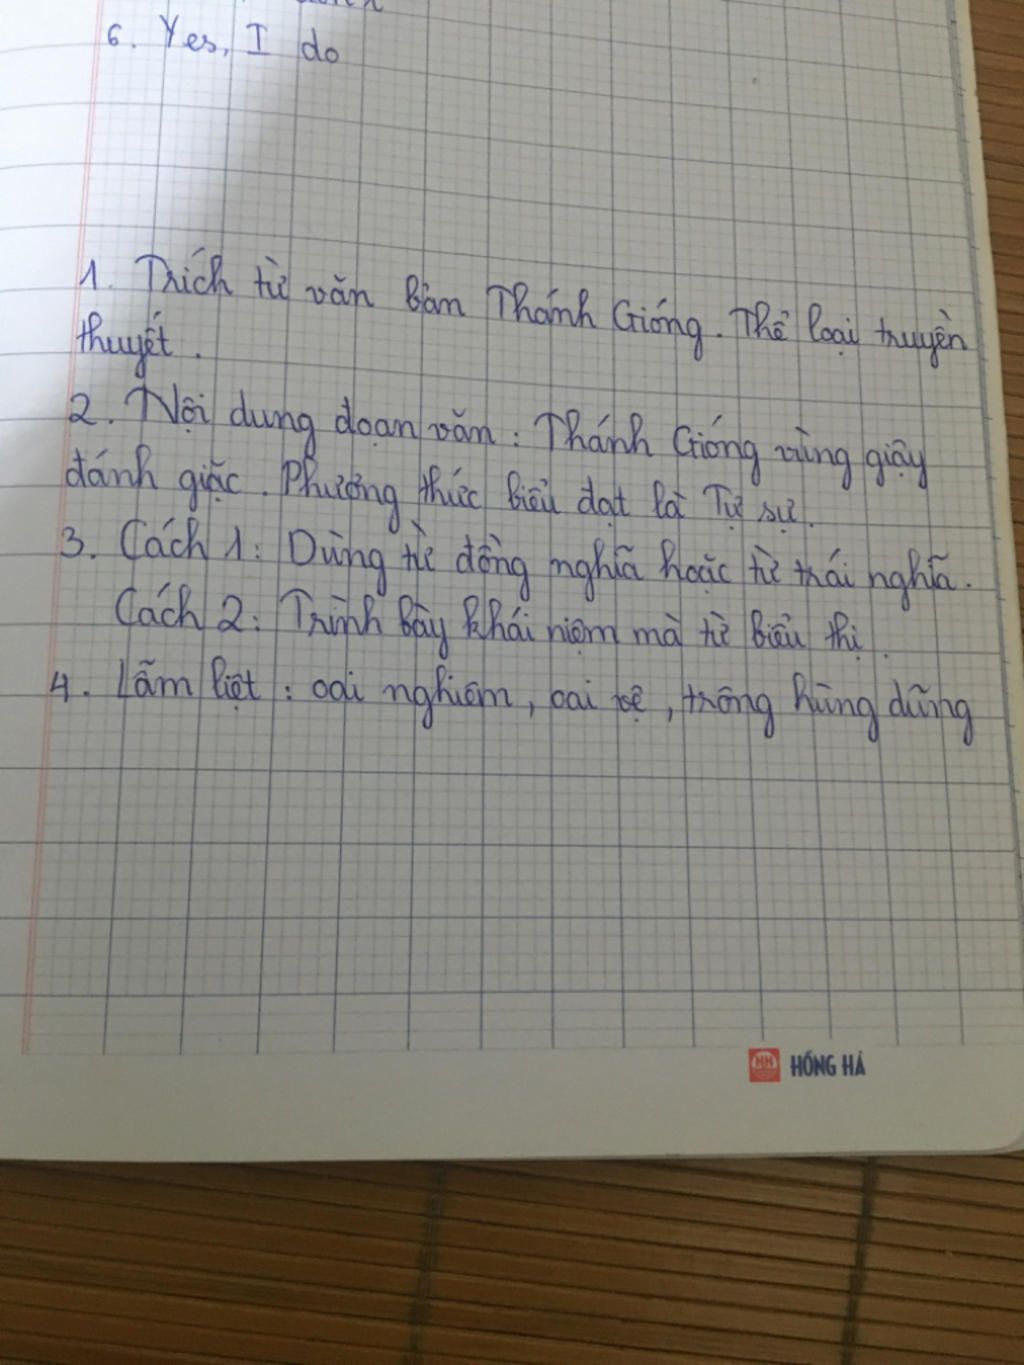 6. Yes, I do
1. Trích từ văn bản Thánh Gióng. Thể loại truyền
thuyết.
2. Nội dung đoạn văn: Thánh Gióng vùng giậy
đánh giặc. Phương thức biểu đạt là Tự sự.
3. Cách 1: Dùng từ đồng nghĩa hoặc từ trái nghĩa.
Cách 2: Trình bày khái niệm mà từ biểu thị.
4. Lẫm liệt: oai nghiêm, oai vệ, trông hùng dũng
HỒNG HÀ